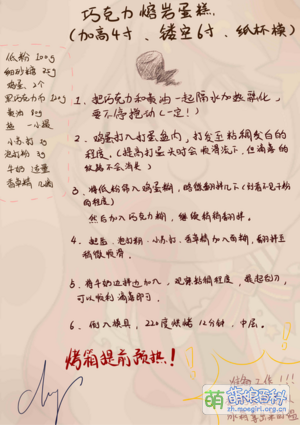 巧克力熔岩蛋糕
(加高4寸、镂空6寸、纸杯模)
低粉 100g
细砂糖 25g
鸡蛋 2个
黑巧克力币 120g
黄油 80g
盐 一小撮
小苏打 2g
泡打粉 3g
牛奶 适量
香草精 几滴
1、把巧克力和黄油一起隔水加热融化,
要不停搅动(一定!)
2、鸡蛋打入打蛋盆内,打发至粘稠发白的
程度,(提高打蛋头时会 但滴落的
纹路不会消失)
3、将低粉筛入鸡蛋糊,略微翻拌几下(到看不见干粉
的程度)
然后加入巧克力糊,继续稍稍翻拌。
4、把盐、泡打粉、小苏打、香草精加入面糊,翻拌至
稍微吸滑。
5、将牛奶边拌边加入,观察粘稠程度,提起刮刀,
可以顺利滴落即可。
6、倒入模具,220度烘烤12分钟,中层。
烤箱提前预热!
萌娘百科
zh.moegirl.org.cn